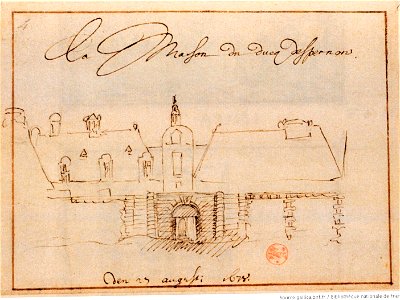 4
La Maison du ducq desspernon.
den 27 augusti
Source gallica.bnf.fr / Bibliothèque nationale de Fran